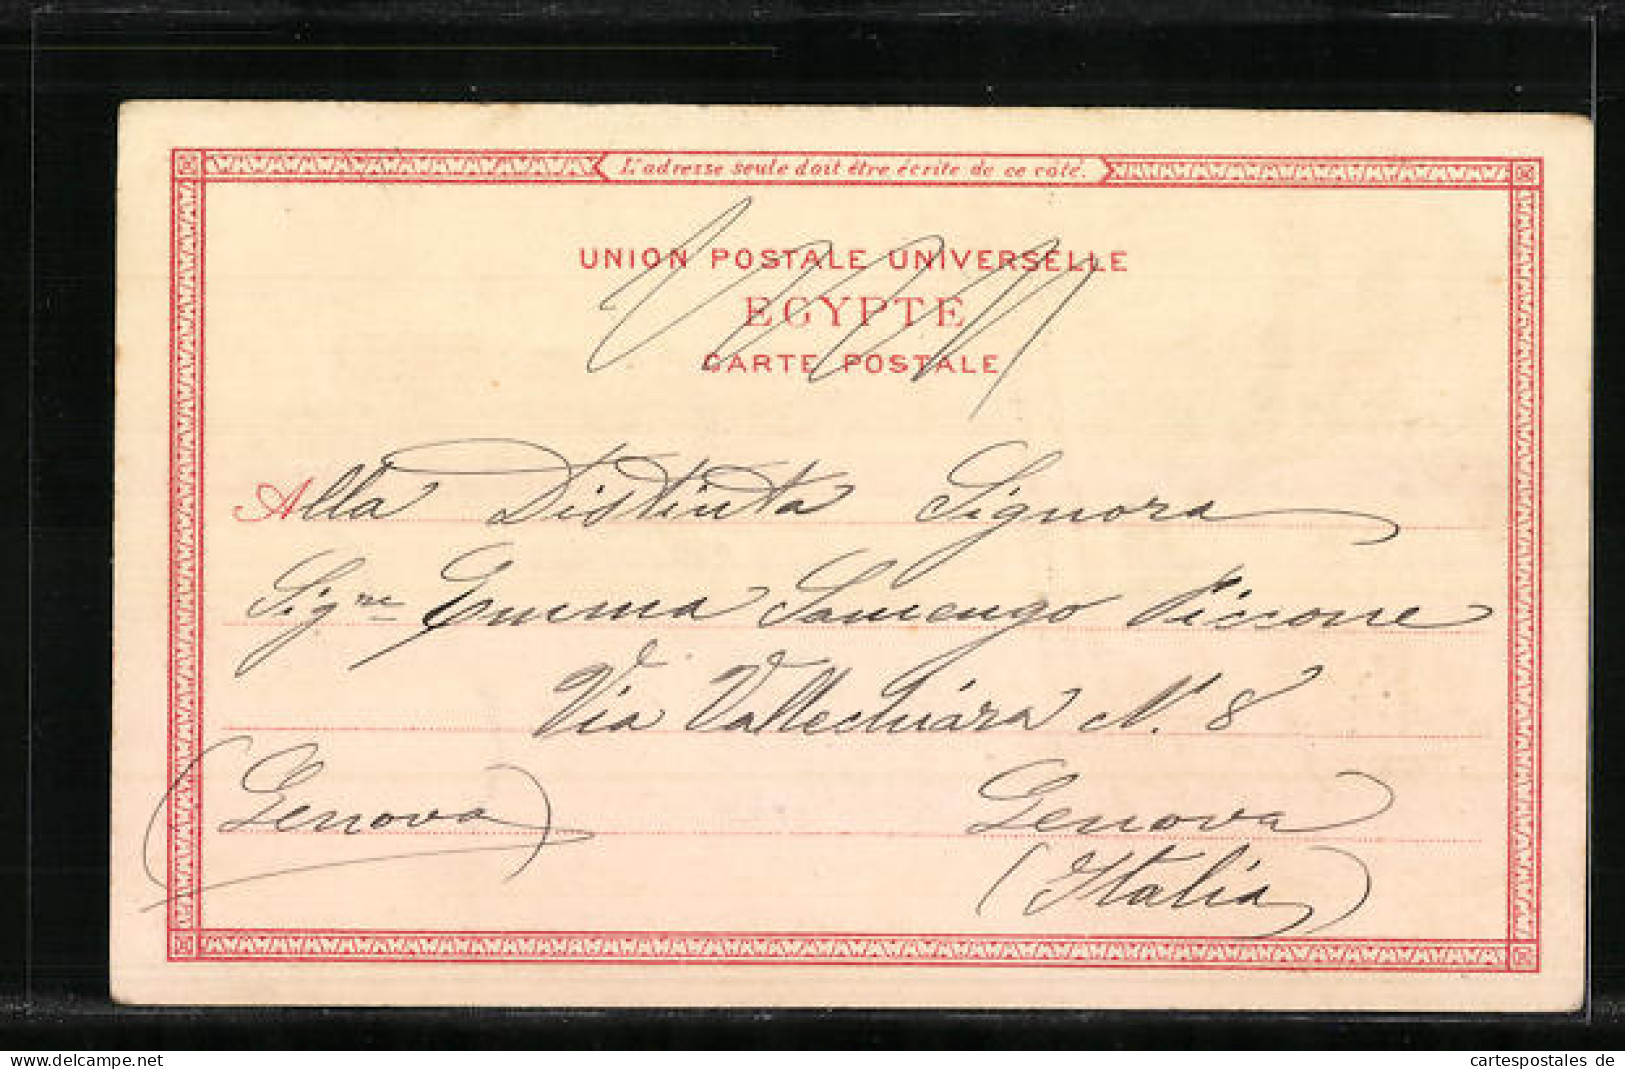 L'adresse seule doit être écrite de ce côté.
UNION POSTALE UNIVERSELLE
EGYPTE
CARTE POSTALE
Alla Distinta Signora
Sig.ra Emma Samengo Piccone
Via Vallechiara N. 8
(Genova) Genova
(Italia)
cartespostales de